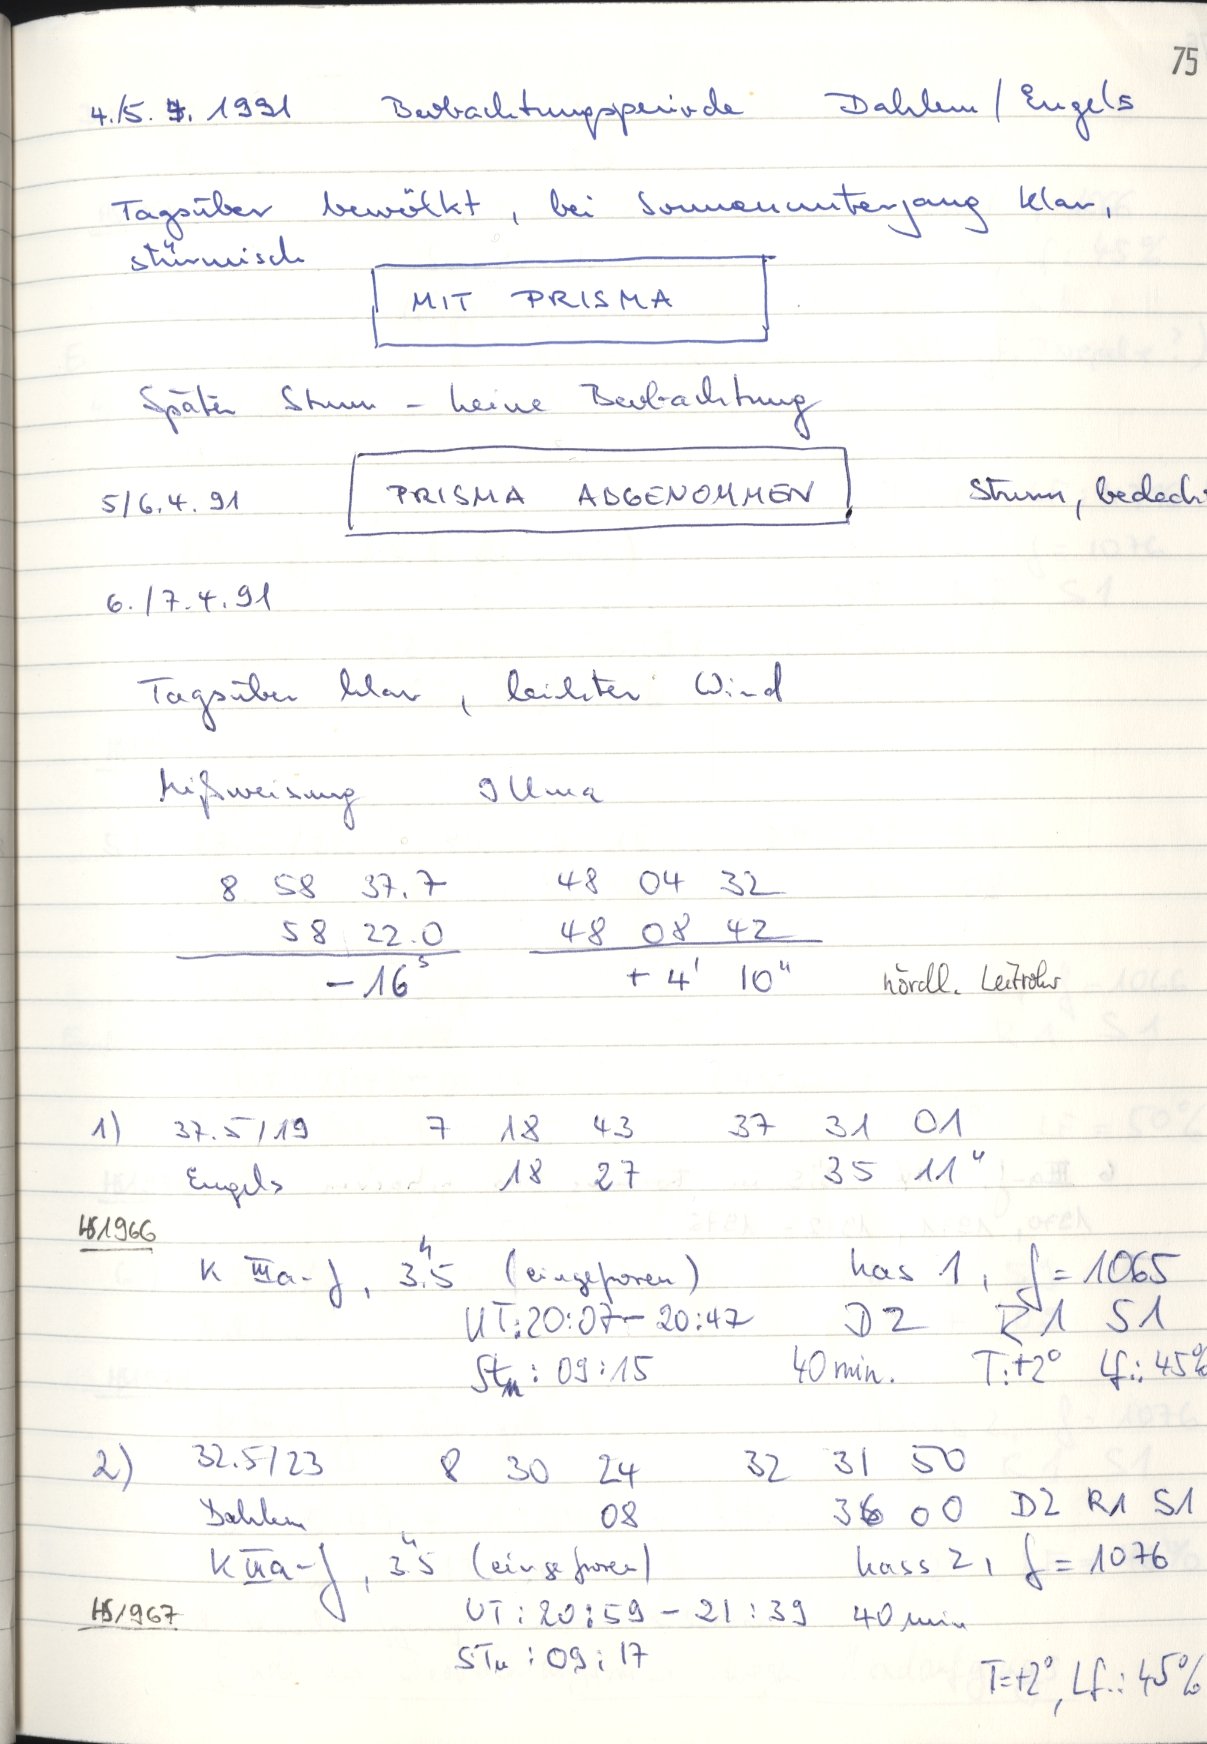 75
4./5. 4. 1991 Beobachtungsperiode Dahlem / Engels
Tagsüber bewölkt, bei Sonnenuntergang klar,
stürmisch
MIT PRISMA
Später Sturm - keine Beobachtung
5/6.4.91 PRISMA ABGENOMMEN Sturm, bedeckt
6./7.4.91
Tagsüber klar, leichter Wind
Mißweisung 9 Uma
8 58 37.7 48 04 32
58 22.0 48 08 42
-16ˢ + 4' 10" nördl. Leitrohr
1) 37.5/19 7 18 43 37 31 01
Engels 18 27 35 11"
HS1966
K IIIa-J, 3."5 (eingefroren) kas 1, f = 1065
UT: 20:07 - 20:47 D2 R1 S1
St: 09:15 40 min. T:+2° Lf.: 45%
2) 32.5/23 8 30 24 32 31 50
Dahlem 08 36 00 D2 R1 S1
K IIIa-J, 3"5 (eingefroren) kass 2, f = 1076
HS1967 UT: 20:59 - 21:39 40 min
ST: 09:17
T=+2°, Lf.: 45%